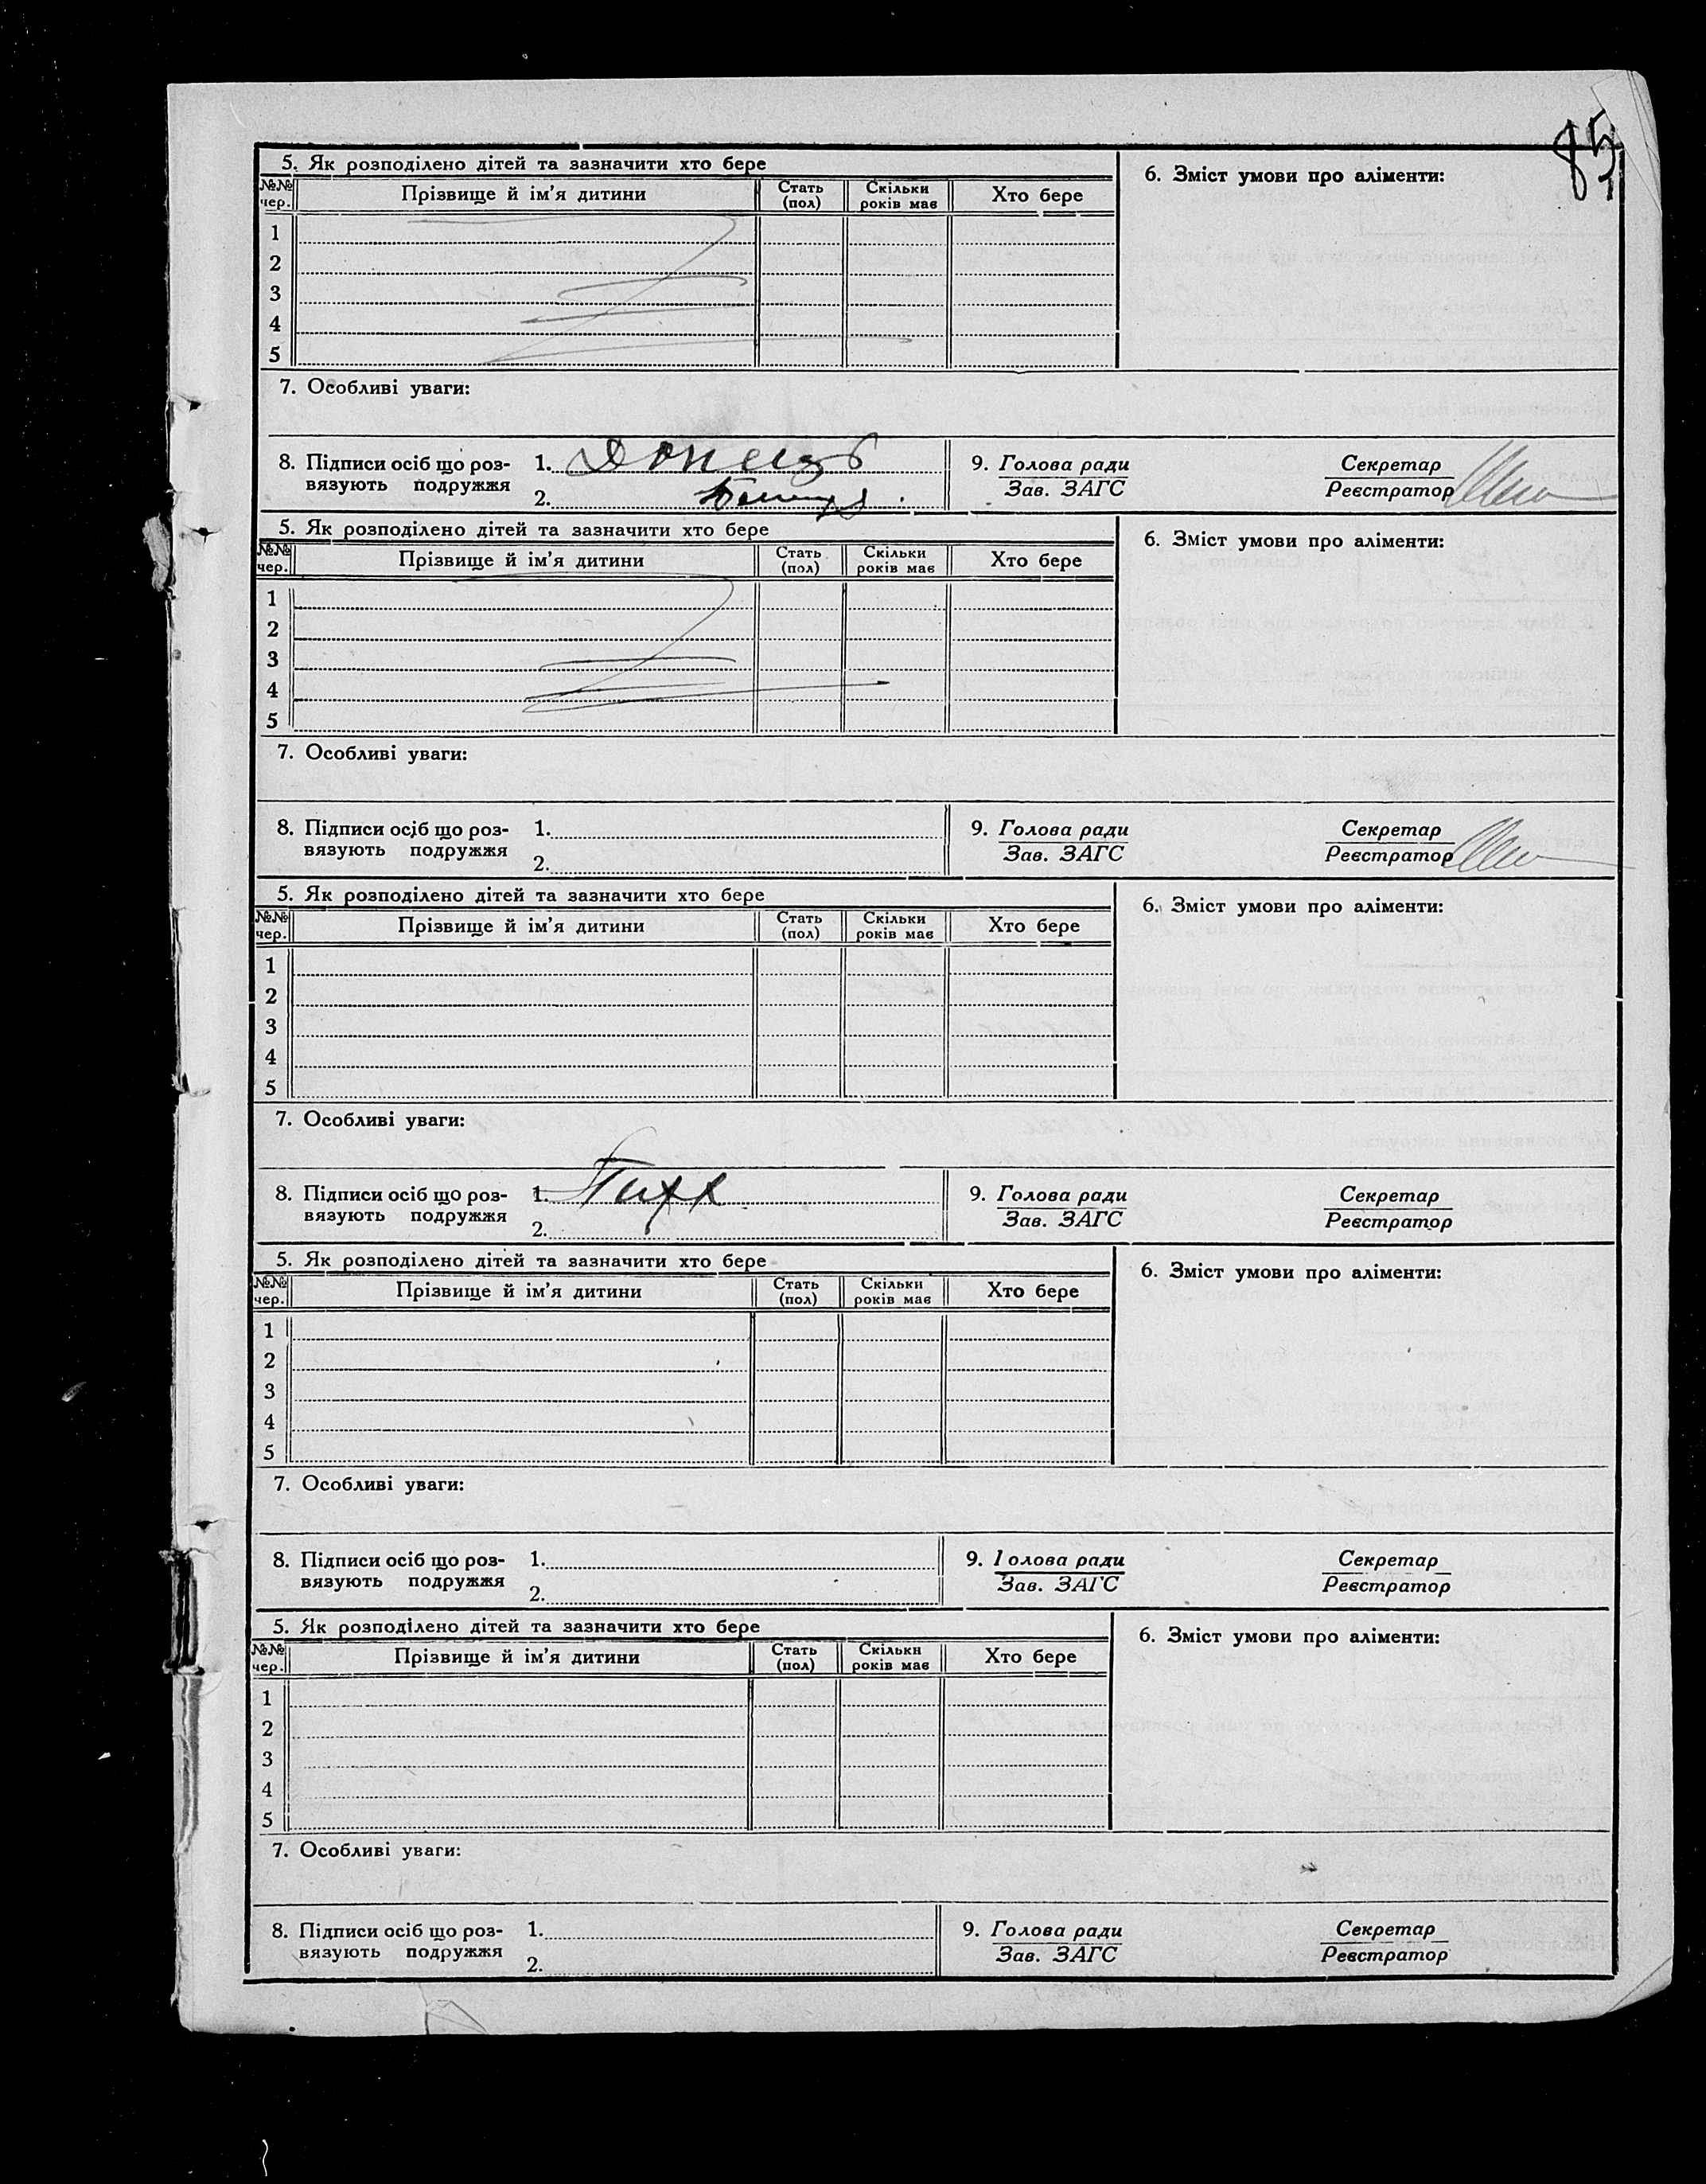 85
5. Як розподілено дітей та зазначити хто бере
6. Зміст умови про аліменти:
№№ чер. Прізвище й ім'я дитини Стать (пол) Скільки років має Хто бере
1
2
3
4
5
7. Особливі уваги:
8. Підписи осіб що роз- 1. Донець 9. Голова ради Секретар
вязують подружжя 2. Зав. ЗАГС Реєстратор
5. Як розподілено дітей та зазначити хто бере
6. Зміст умови про аліменти:
№№ чер. Прізвище й ім'я дитини Стать (пол) Скільки років має Хто бере
1
2
3
4
5
7. Особливі уваги:
8. Підписи осіб що роз- 1. 9. Голова ради Секретар
вязують подружжя 2. Зав. ЗАГС Реєстратор
5. Як розподілено дітей та зазначити хто бере
6. Зміст умови про аліменти:
№№ чер. Прізвище й ім'я дитини Стать (пол) Скільки років має Хто бере
1
2
3
4
5
7. Особливі уваги:
8. Підписи осіб що роз- 1. 9. Голова ради Секретар
вязують подружжя 2. Зав. ЗАГС Реєстратор
5. Як розподілено дітей та зазначити хто бере
6. Зміст умови про аліменти:
№№ чер. Прізвище й ім'я дитини Стать (пол) Скільки років має Хто бере
1
2
3
4
5
7. Особливі уваги:
8. Підписи осіб що роз- 1. 9. Голова ради Секретар
вязують подружжя 2. Зав. ЗАГС Реєстратор
5. Як розподілено дітей та зазначити хто бере
6. Зміст умови про аліменти:
№№ чер. Прізвище й ім'я дитини Стать (пол) Скільки років має Хто бере
1
2
3
4
5
7. Особливі уваги:
8. Підписи осіб що роз- 1. 9. Голова ради Секретар
вязують подружжя 2. Зав. ЗАГС Реєстратор